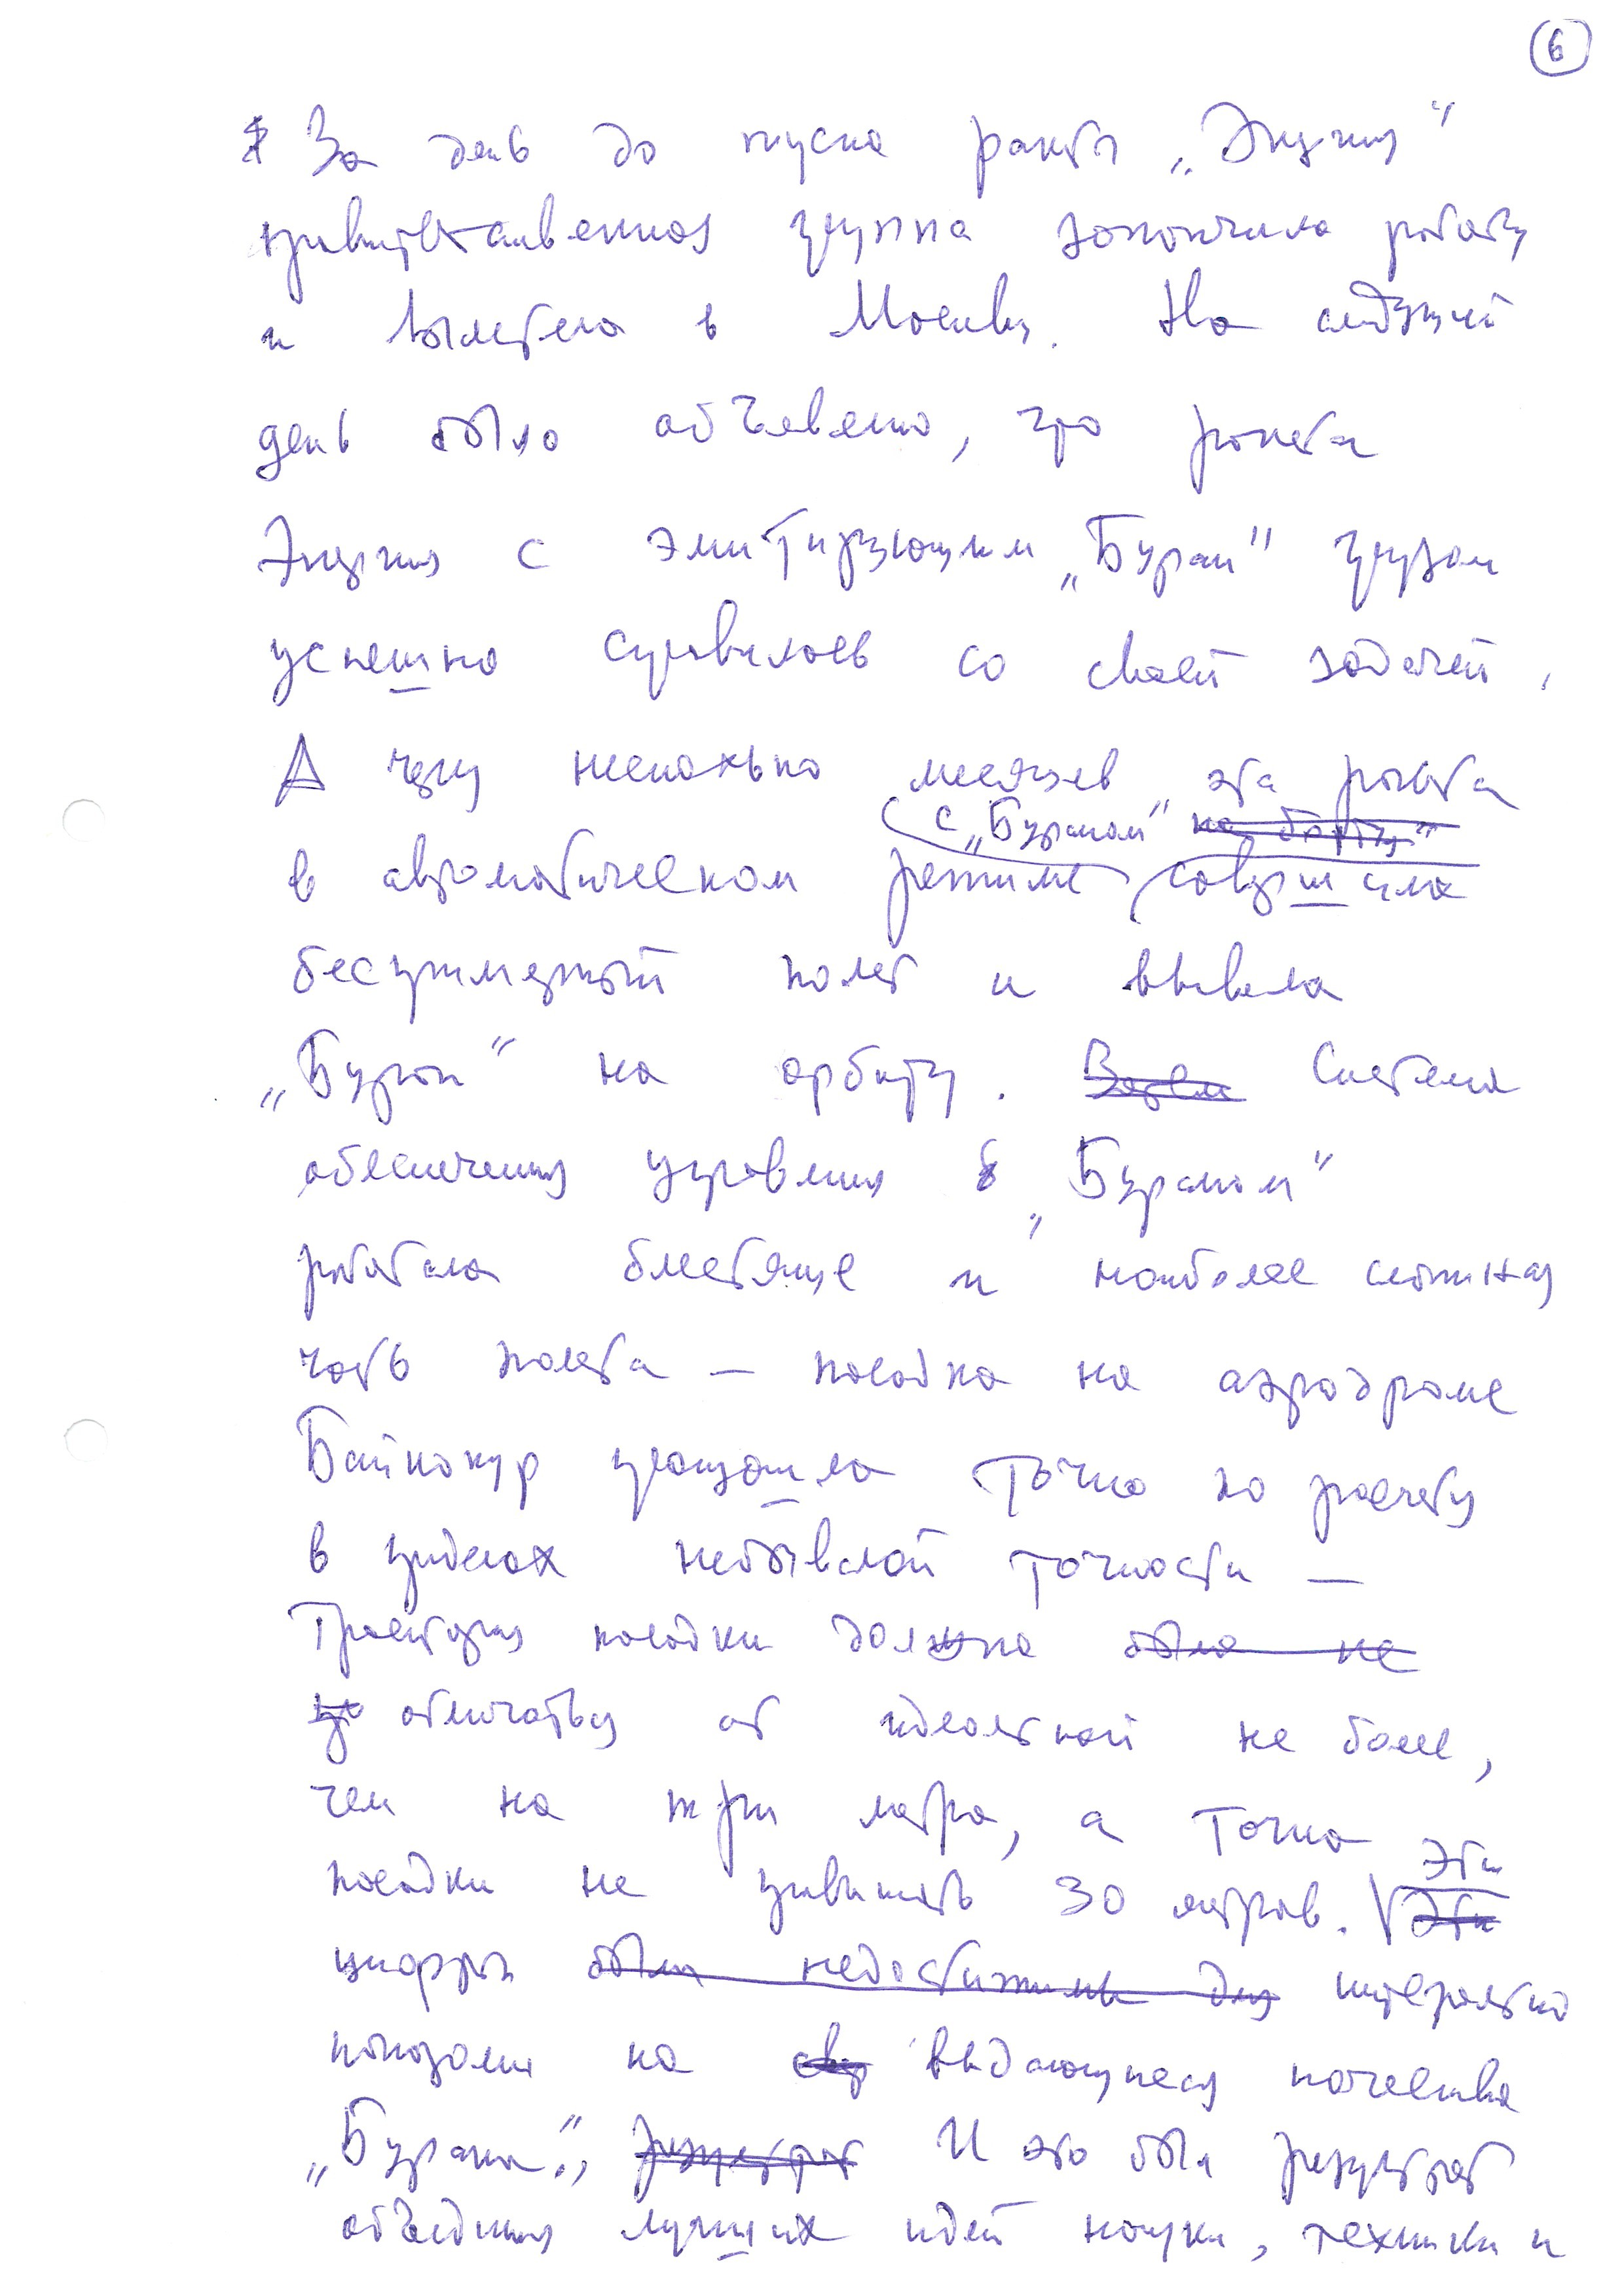 6
За день до пуска ракеты „Энергия"
правительственная группа закончила работу
и вылетела в Москву. На следующий
день было объявлено, что ракета
Энергия с эмитирующим „Буран" грузом
успешно справилась со своей задачей.
А через несколько месяцев эта ракета
с „Бураном" на борту"
в автоматическом режиме совершила
беспримерный полет и вывела
„Буран" на орбиту. Затем Система
обеспечения управления „Бураном"
работала блестяще и наиболее сложная
часть полета — посадка на аэродроме
Байконур произошла точно по расчету
в пределах небывалой точности —
Траектория посадки должна была не
отличаться от идеальной не более,
чем на три метра, а точка
посадки не превышать 30 метров. Эти Эти
цифры были недостижимы для интегрально
показали на выдающиеся качества
„Бурана". результат И это был результат
объединения лучших идей науки, техники и